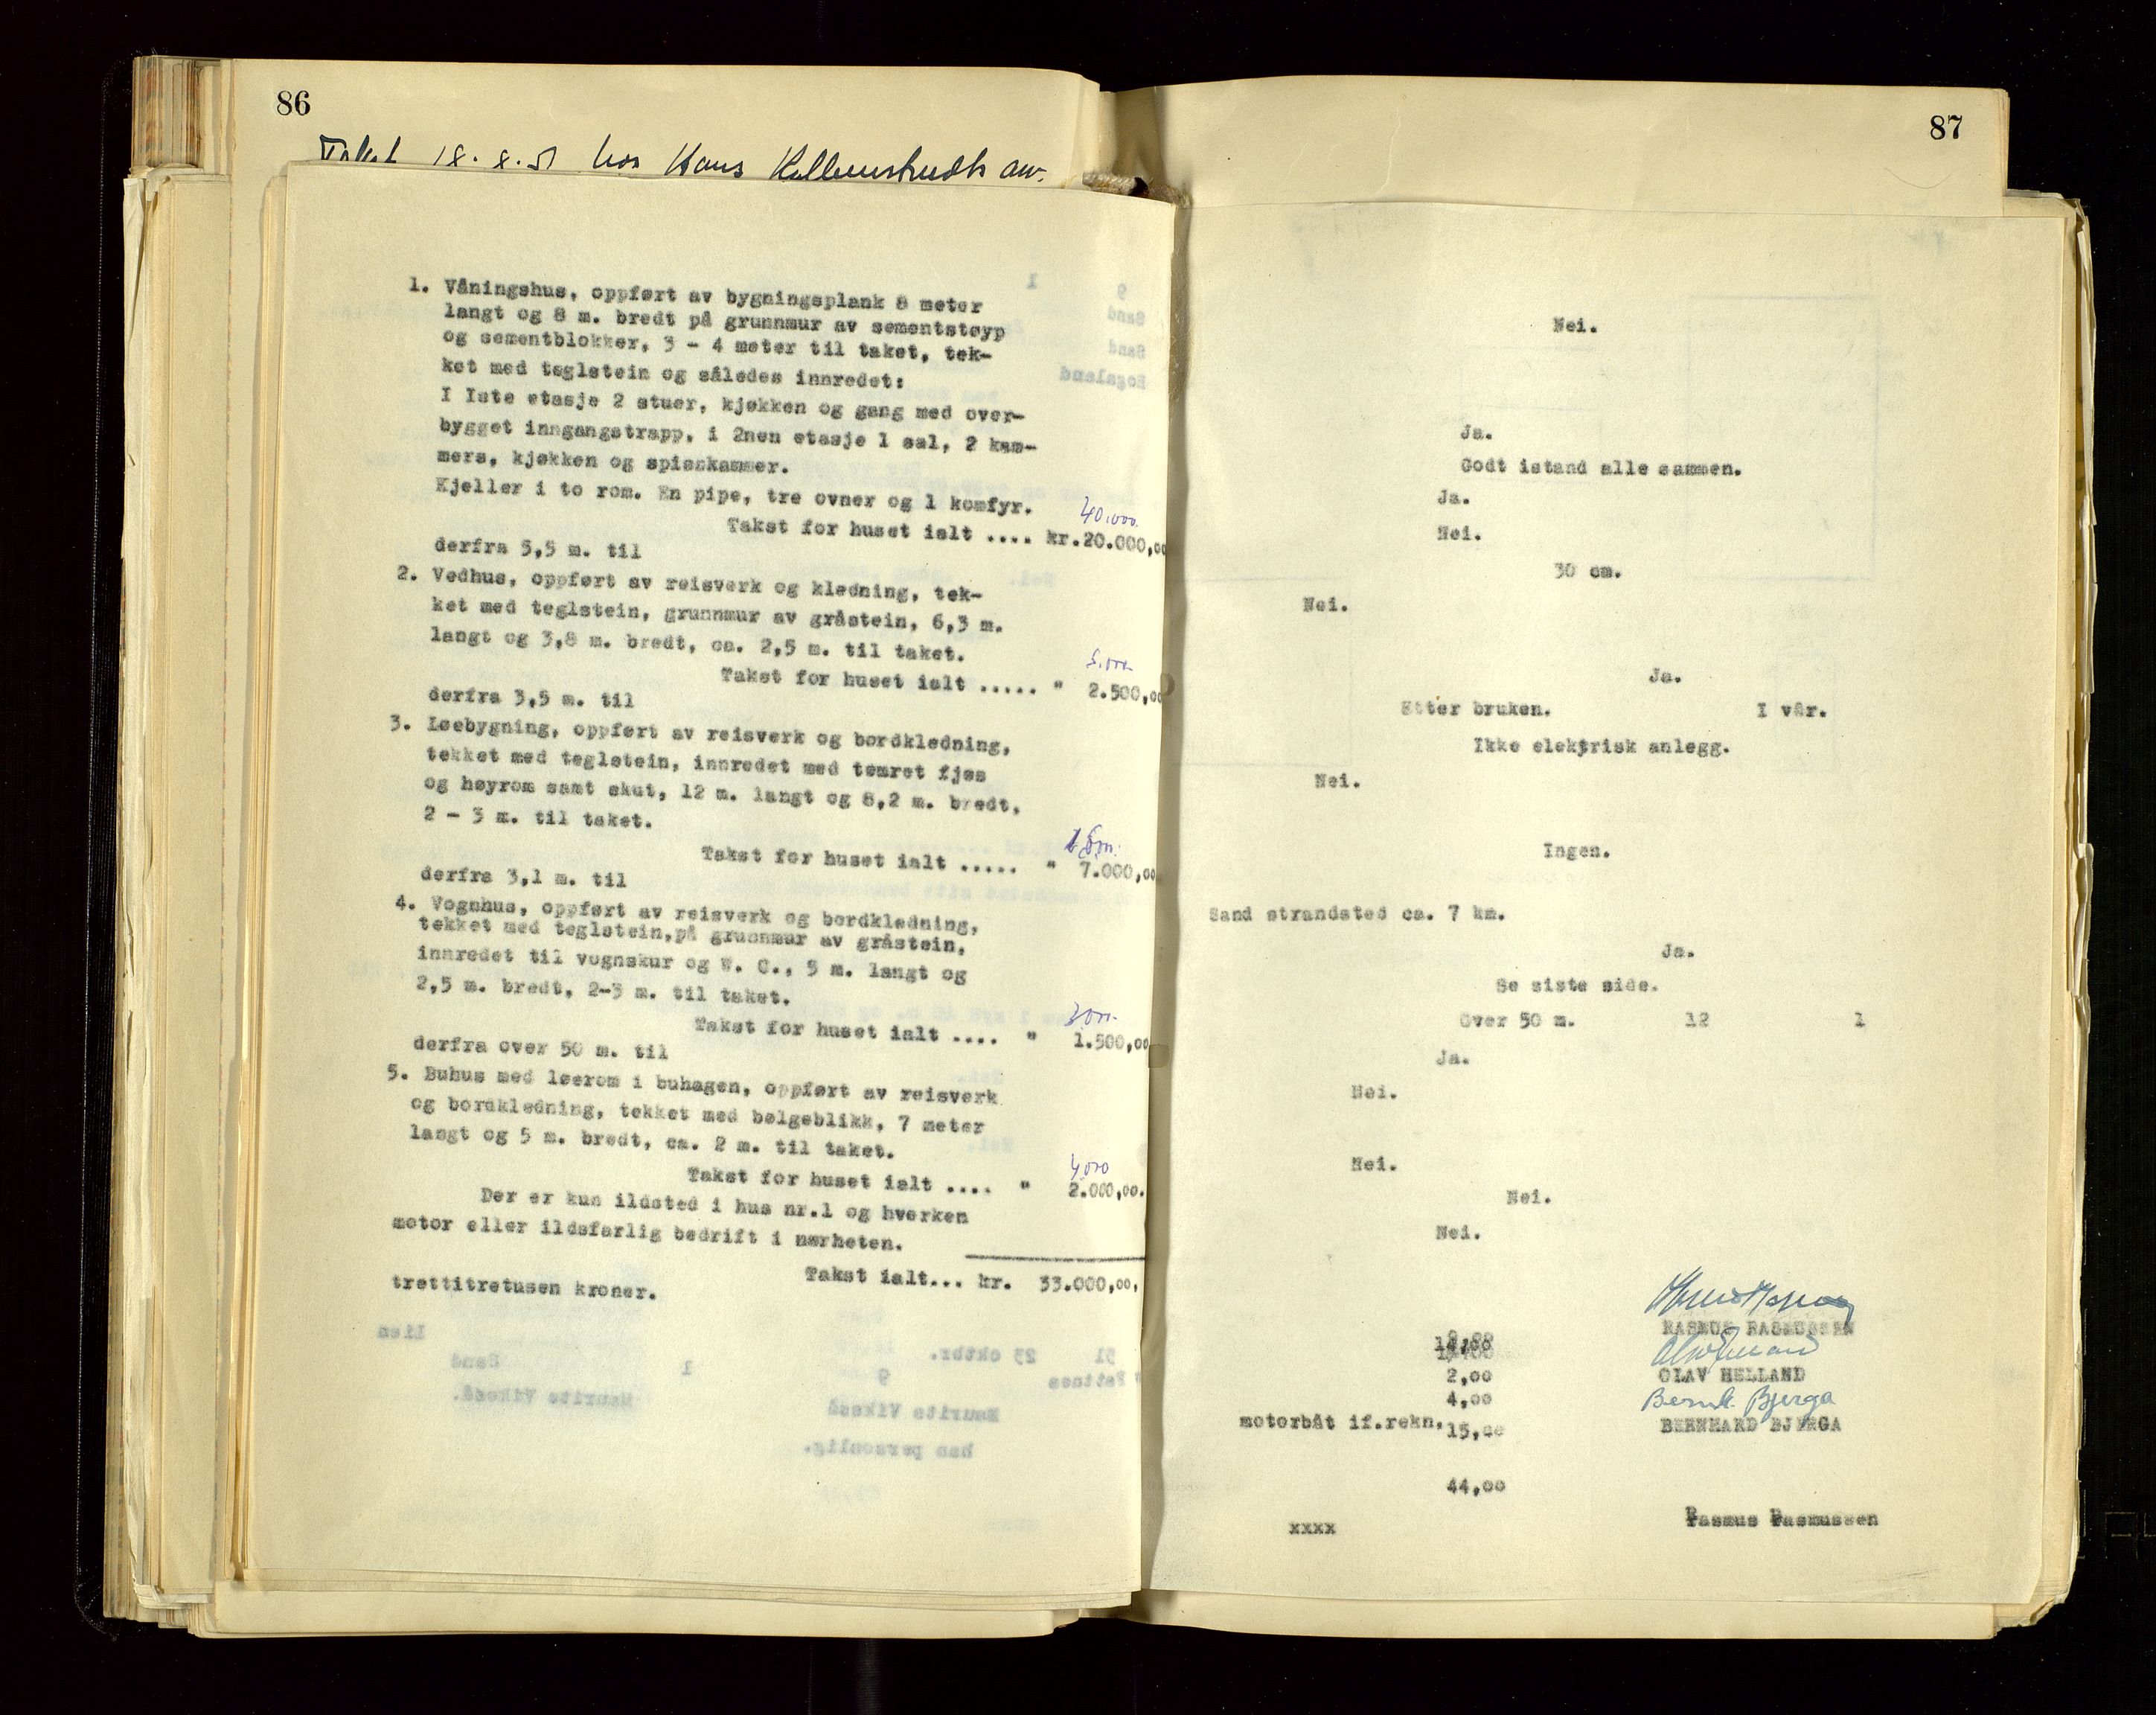 86
18.8.51 hos Hans
1. Våningshus, oppført av bygningsplank 8 meter
langt og 8 m. bredt på grunnmur av sementstøyp
og sementblokker, 3 - 4 meter til taket, tek-
ket med teglstein og således innredet:
I Iste etasje 2 stuer, kjøkken og gang med over-
bygget inngangstrapp, i 2nen etasje 1 sal, 2 kam-
mers, kjøkken og spiskammer.
Kjeller i to rom. En pipe, tre ovner og 1 komfyr.
40.000.
Takst for huset ialt .... kr.20.000,oo
derfra 5,5 m. til
2. Vedhus, oppført av reisverk og kledning, tek-
ket med teglstein, grunnmur av gråstein, 6,3 m.
langt og 3,8 m. bredt, ca. 2,5 m. til taket.
Takst for huset ialt ..... " 2.500,oo
derfra 3,5 m. til
3. Løebygning, oppført av reisverk og bordkledning,
tekket med teglstein, innredet med tømret fjøs
og høyrom samt skut, 12 m. langt og 8,2 m. bredt,
2 - 3 m. til taket.
Takst for huset ialt ..... " 7.000,oo
derfra 3,1 m. til
4. Vognhus, oppført av reisverk og bordkledning,
tekket med teglstein,på grunnmur av gråstein,
innredet til vognskur og W. C., 5 m. langt og
2,5 m. bredt, 2-3 m. til taket.
Takst for huset ialt .... " 1.500,oo
derfra over 50 m. til
5. Buhus med løerom i buhagen, oppført av reisverk
og bordkledning, tekket med bølgeblikk, 7 meter
langt og 5 m. bredt, ca. 2 m. til taket.
4000
Takst for huset ialt .... " 2.000,oo.
Der er kun ildsted i hus nr.1 og hverken
motor eller ildsfarlig bedrift i nærheten.
Takst ialt... kr. 33.000,oo,
trettitretusen kroner.
87
Nei.
Ja.
Godt istand alle sammen.
Ja.
Nei.
30 cm.
Nei.
Ja.
Etter bruken. I vår.
Ikke elektrisk anlegg.
Nei.
Ingen.
Sand strandsted ca. 7 km.
Ja.
Se siste side.
Over 50 m. 12 1
Ja.
Nei.
Nei.
Nei.
Nei.
RASMUS RASMUSSEN
14,oo
2,oo OLAV HELLAND
4,oo Bernh. Bjerga
motorbåt if.rekn. 15,oo BERNHARD BJERGA
44,oo
xxxx Rasmus Rasmussen